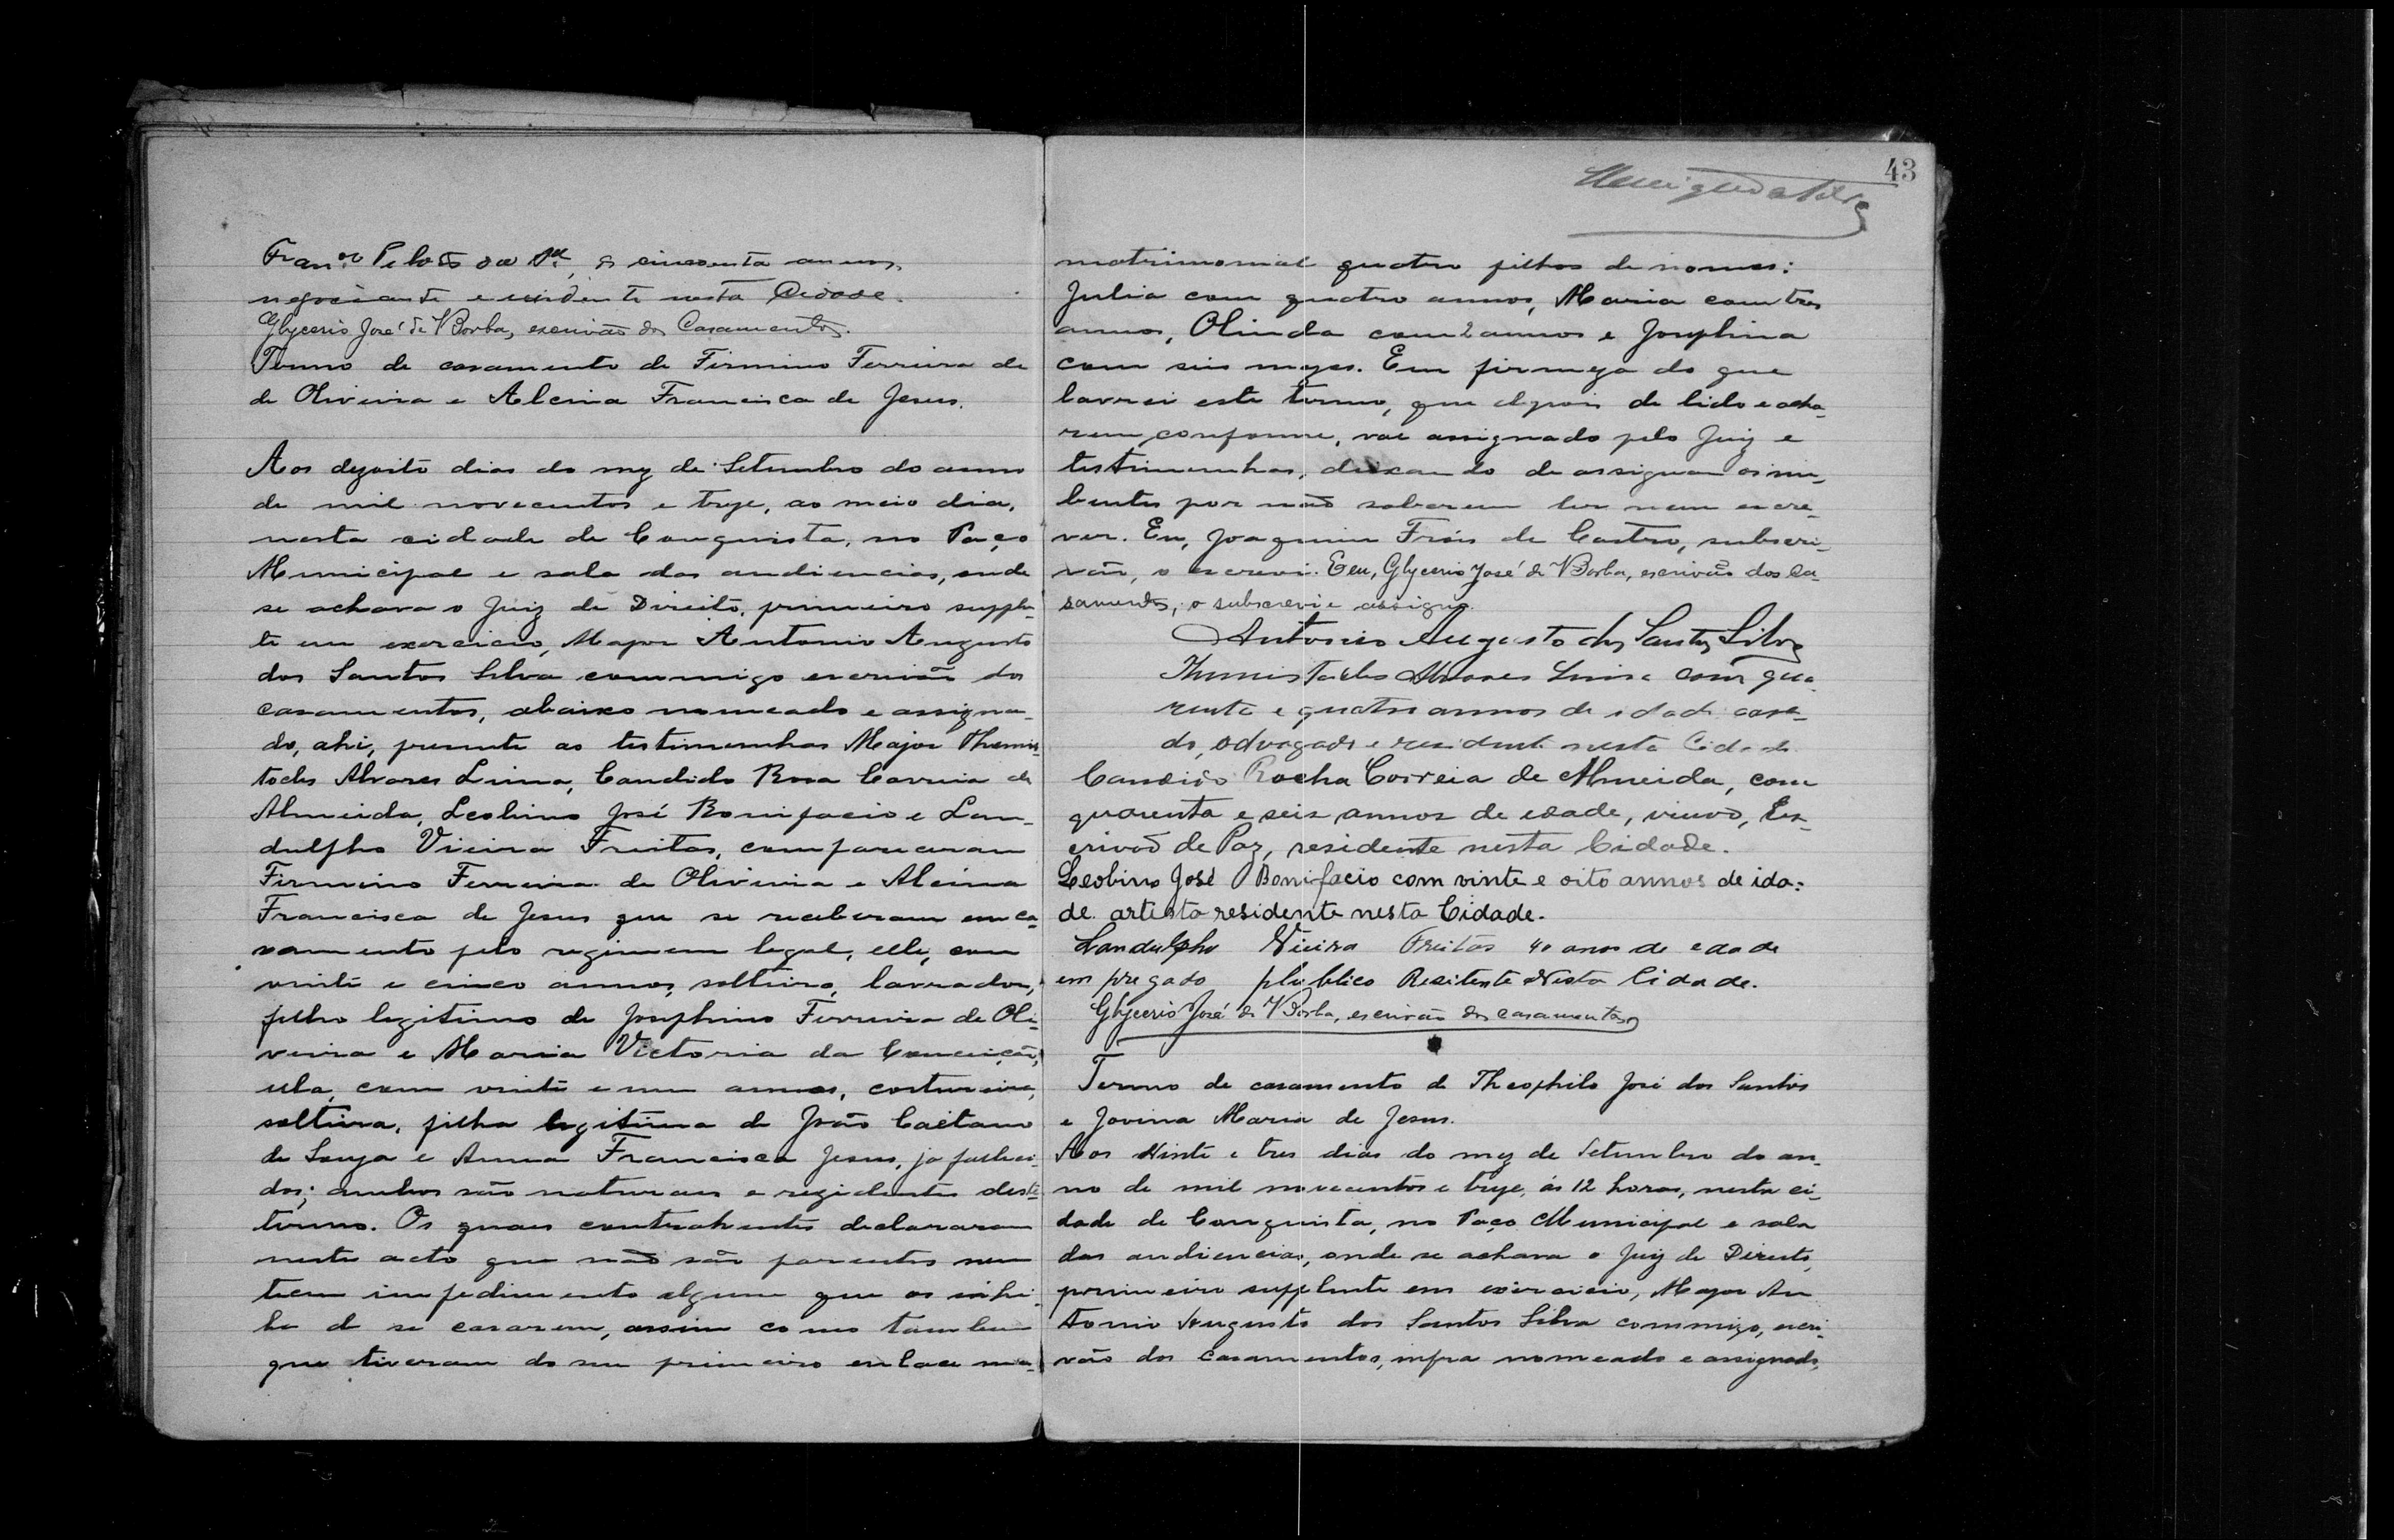 de cincoenta annos,
negociante e residente nesta Cidade.
Glycerio José de Borba, escrivão dos Casamentos.
Termo de casamento de Firmino Ferreira de
de Oliveira e Alcina Francisca de Jesus.
Aos dezoito dias do mez de Setembro do anno
de mil novecentos e treze, ao meio dia,
nesta cidade de Conquista, no Paço
Municipal e sala das audiencias, onde
se achava o Juiz de Direito, primeiro supplen-
te em exercicio, Major Antonio Augusto
dos Santos Silva commigo escrivão dos
casamentos, abaixo nomeado e assigna-
do, ahi, presente as testimunhas Major Themis-
tocles Alvares Lima, Candido Rosa Correia de
Almeida, Leobino José Bonifacio e Lan-
dulpho Vieira Freitas, compareceram
Firmino Ferreira de Oliveira e Alcina
Francisca de Jesus que se receberam em ca-
samento pelo regimem legal, elle, com
vinte e cinco annos, solteiro, lavrador,
filho legitimo de Josephino Ferreira de Oli-
veira e Maria Victoria da Conceição,
ella, com vinte e um annos, costureira,
solteira, filha legitima de João Caêtano
de Souza e Anna Francisca Jesus, ja falleci-
dos; ambos são naturaes e rezidentes deste
termo. Os quaes contrahentes declararam
neste acto que não são parentes nem
teem impedimento algum que os inhi-
ba de se casarem, assim como tambem
que tiveram do seu primeiro enlace ma-
43
matrimonial quatro filhos de nomes:
Julia com quatro annos, Maria com tres
annos, Olinda com 2 annos e Josephina
com seis mezes. Em firmeza do que
lavrei este termo, que depois de lido e acha-
rem conforme, vae assignado pelo Juiz e
testimunhas, deixando de assignar os nu-
bentes por não saberem ler nem escre-
ver. Eu, Joaquim Fróis de Castro, subscri-
vão, o escrevi. E eu, Glycerio José de Borba, escrivão dos Ca-
samentos, o subscrevi e assigno.
Antonio Augusto dos Santos Silva
Themistocles Alvares Lima com qua-
renta e quatro annos de idade casa-
do, advogado e residente nesta Cidade.
Candido Rocha Correia de Almeida, com
quarenta e seis annos de edade, viuvo, Es-
crivão de Paz, residente nesta Cidade.
Leobino José Bonifacio com vinte e oito annos de ida-
de. artista residente nesta Cidade.
Landulpho Vieira Freitas 40 anos de edade
empregado plublico Resitente Nesta Cidade.
Glycerio José de Borba, escrivão dos casamentos
Termo de casamento de Theophilo José dos Santos
e Jovina Maria de Jesus.
Aos Vinte e tres dias do mez de Setembro do an-
no de mil novecentos e treze, ás 12 horas, nesta ci-
dade de Conquista, no Paço Municipal e sala
das audiencias, onde se achava o Juiz de Direito,
primeiro supplente em exercicio, Major An
tonio Augusto dos Santos Silva commigo, escri-
vão dos casamentos, infra nomeado e assignado,